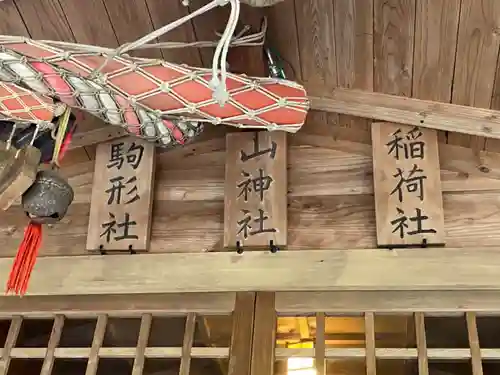 駒形社
山神社
稲荷社